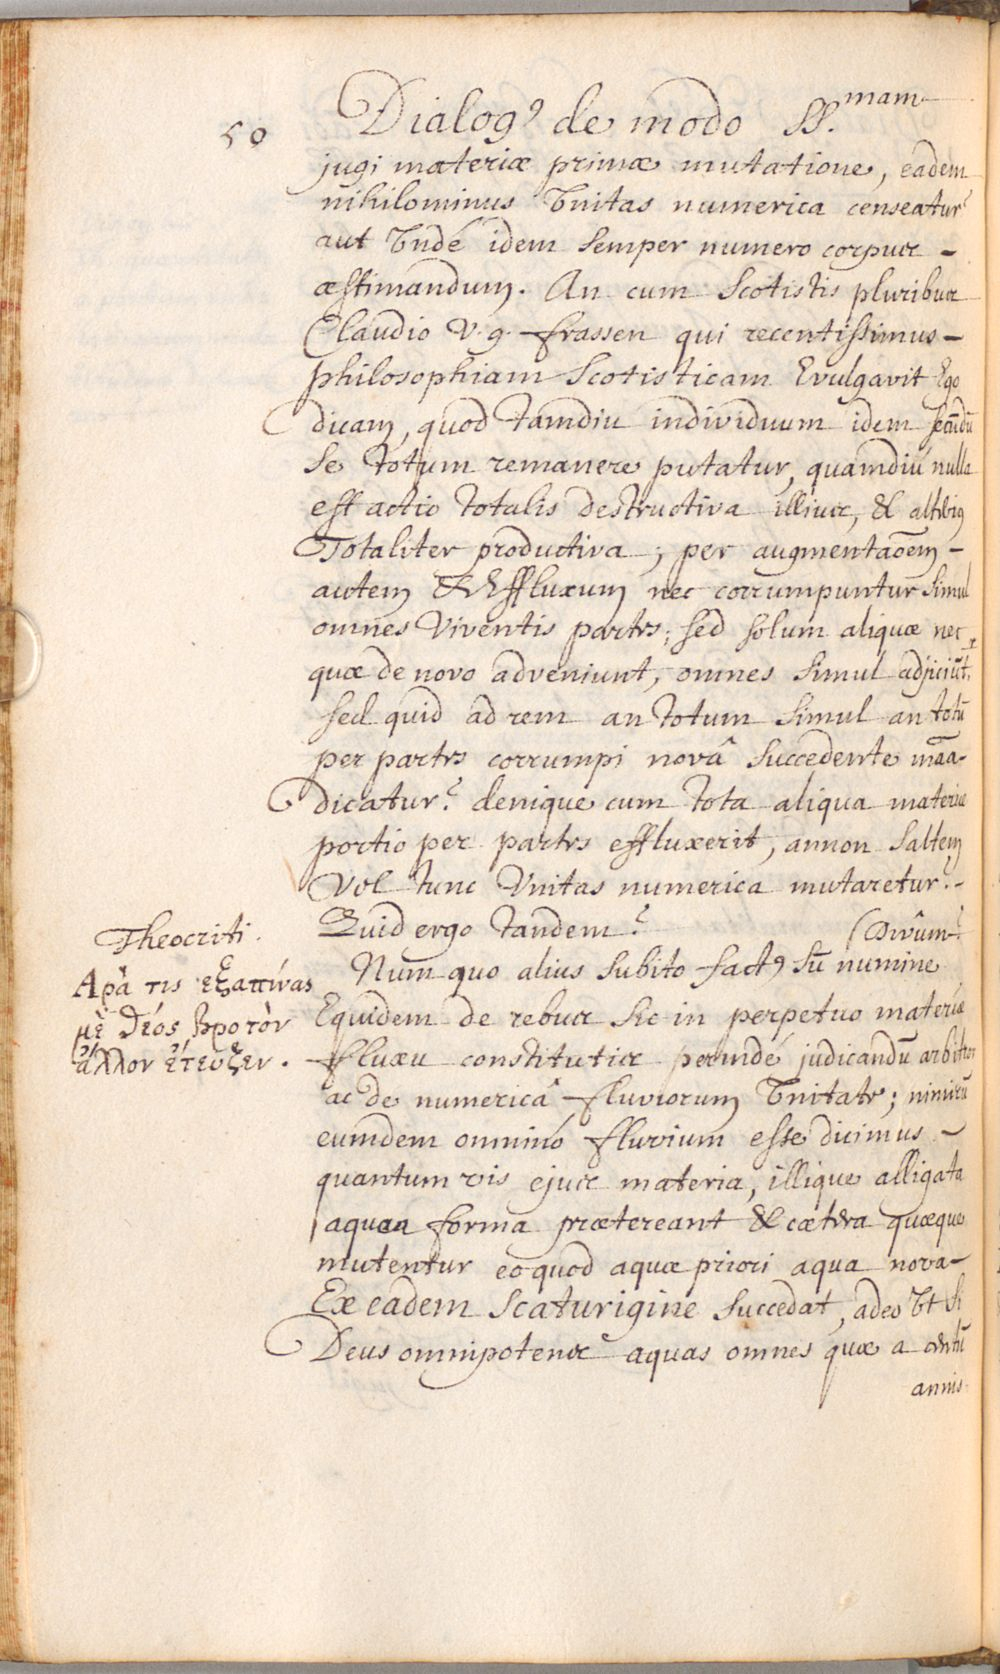 50 Dialog⁹ de modo SS.mam
jugi materiæ primæ mutatione, eadem
nihilominus Vnitas numerica censeatur?
aut Vndé idem semper numero corpus -
æstimandum. An cum Scotistis pluribus
Claudio V. g. frassen qui recentissimus -
philosophiam Scotisticam Evulgavit Ego
dicam, quod tamdiu individuum idem secūdū
se totum remanere putatur, quamdiú nulla
est actio totalis destructiva illius, & alterius
Totaliter productiva ; per augmentaōem -
autem & Effluxum nec corrumpuntur simul
omnes Viventis partes; sed solum aliquæ nec
quæ de novo adveniunt, omnes simul adjiciūt.r
sed quid ad rem an totum simul an totū
per partes corrumpi novâ succedente māa-
dicatur? denique cum tota aliqua materiæ
portio per partes effluxerit, annon saltem
Vel tunc Vnitas numerica mutaretur? -
Quid ergo tandem? (Divûm?
Num quo alius subito fact⁹ sū numine
Theocriti.
Αρα τις εξαπίνας
με θεός βροτὸν
άλλον έτευξεν .
Equidem de rebus sic in perpetuo materiæ
fluxu constitutis perindé judicandū arbitror
ac de numericâ fluviorum Vnitate; nimirū
eumdem omninó fluvium esse dicimus -
quantum vis ejus materia, illique alligata
aquea forma prætereant & cætera quæque
mutentur eo quod aquæ priori aqua nova -
Ex eadem scaturigine succedat, adeo Vt si
Deus omnipotens aquas omnes quæ a centū
annis